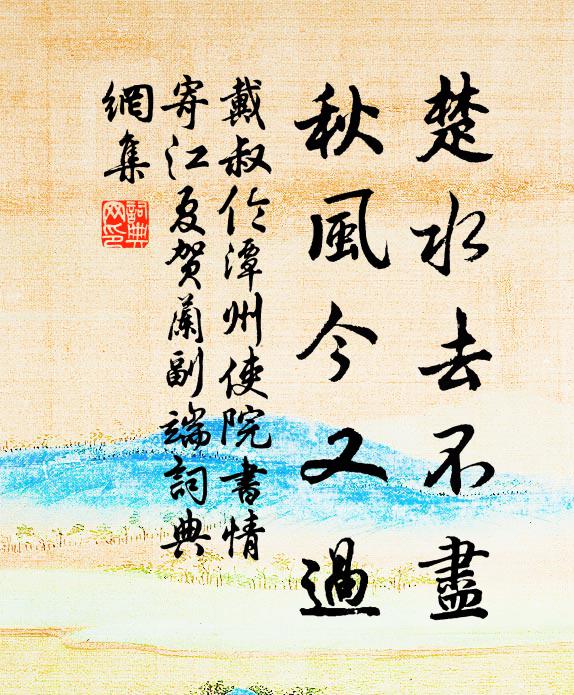 楚水去不盡
秋風今又過
戴叔伦潭州使院書情
寄江夏賀蘭副端詞典
網集
詞典網印